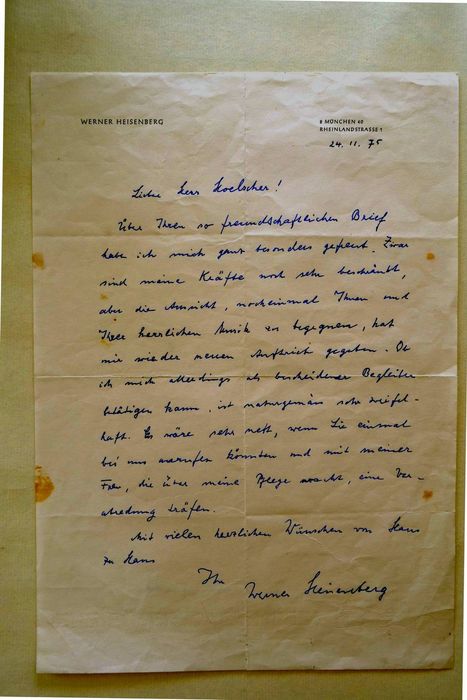 WERNER HEISENBERG
8 MÜNCHEN 40
RHEINLANDSTRASSE 1
24. 11. 75
Lieber Herr Hoelscher!
Über Ihren so freundschaftlichen Brief
habe ich mich ganz besonders gefreut. Zwar
sind meine Kräfte noch sehr beschränkt,
aber die Aussicht, noch einmal Ihnen und
Ihrer herrlichen Musik zu begegnen, hat
mir wieder neuen Auftrieb gegeben. Ob
ich mich allerdings als bescheidener Begleiter
betätigen kann, ist naturgemäss sehr zweifel-
haft. Es wäre sehr nett, wenn Sie einmal
bei uns anrufen könnten und mit meiner
Frau, die über meine Pflege wacht, eine Ver-
abredung träfen.
Mit vielen herzlichen Wünschen von Haus
zu Haus
Ihr
Werner Heisenberg